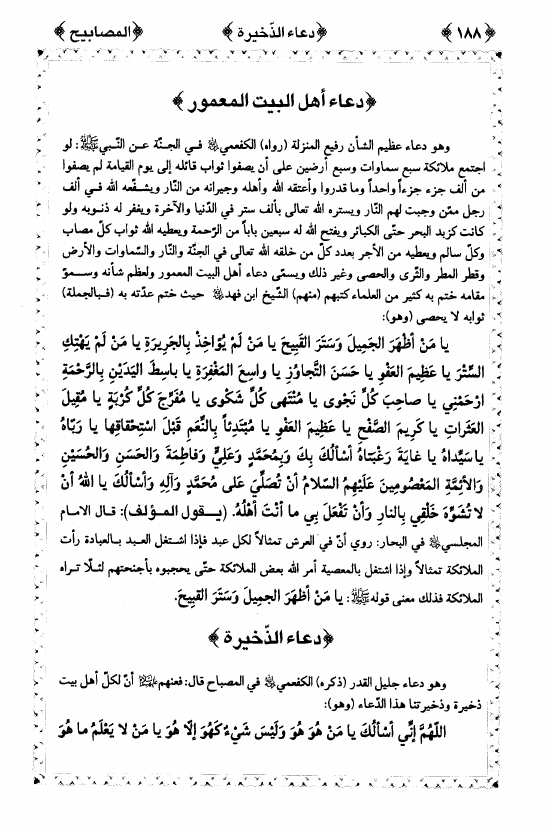 ﴿١٨٨﴾ ﴿دعاء الذّخيرة﴾ ﴿المصابيح﴾
﴿دعاء أهل البيت المعمور﴾
وهو دعاء عظيم الشأن رفيع المنزلة (رواه) الكفعمي في الجنّة عن النّبي ﷺ: لو
اجتمع ملائكة سبع سماوات وسبع أرضين على أن يصفوا ثواب قائله إلى يوم القيامة لم يصفوا
من ألف جزء جزءاً واحداً وما قدروا وأعتقه الله وأهله وجيرانه من النّار ويشفّعه الله في ألف
رجل ممّن وجبت لهم النّار ويستره الله تعالى بألف ستر في الدّنيا والآخرة ويغفر له ذنوبه ولو
كانت كزبد البحر حتّى الكبائر ويفتح الله له سبعين باباً من الرّحمة ويعطيه الله ثواب كلّ مصاب
وكلّ سالم ويعطيه من الأجر بعدد كلّ من خلقه الله تعالى في الجنّة والنّار والسّماوات والأرض
وقطر المطر والثّرى والحصى وغير ذلك ويسمّى دعاء أهل البيت المعمور ولعظم شأنه وسموّ
مقامه ختم به كثير من العلماء كتبهم (منهم) الشّيخ ابن فهد حيث ختم عدّته به (فبالجملة)
ثوابه لا يحصى (وهو):
يا مَنْ أظْهَرَ الجَميلَ وَسَتَرَ القَبيحَ يا مَنْ لَمْ يُؤاخِذْ بِالجَريرَةِ يا مَنْ لَمْ يَهْتِكِ
السِّتْرَ يا عَظيمَ العَفْوِ يا حَسَنَ التَّجاوُزِ يا واسِعَ المَغْفِرَةِ يا باسِطَ اليَدَيْنِ بِالرَّحْمَةِ
ارْحَمْني يا صاحِبَ كُلِّ نَجْوى يا مُنْتَهى كُلِّ شَكْوى يا مُفَرِّجَ كُلِّ كُرْبَةٍ يا مُقيلَ
العَثَراتِ يا كَريمَ الصَّفْحِ يا عَظيمَ العَفْوِ يا مُبْتَدِئاً بِالنِّعَمِ قَبْلَ اسْتِحْقاقِها يا رَبّاهُ
يا سَيِّداهُ يا غايَةَ رَغْبَتاهُ أسْألُكَ بِكَ وَبِمُحَمَّدٍ وَعَليٍّ وَفاطِمَةَ وَالحَسَنِ وَالحُسَيْنِ
وَالأئِمَّةِ المَعْصُومينَ عَلَيْهِمُ السَّلامُ أنْ تُصَلِّيَ عَلى مُحَمَّدٍ وَآلِهِ وَأسْألُكَ يا اللهُ أنْ
لا تُشَوِّهَ خَلْقي بِالنارِ وَأنْ تَفْعَلَ بي ما أنْتَ أهْلُهُ. (يقول المؤلف): قال الامام
المجلسي في البحار: روي أنّ في العرش تمثالاً لكل عبد فإذا اشتغل العبد بالعبادة رأت
الملائكة تمثالاً وإذا اشتغل بالمعصية أمر الله بعض الملائكة حتّى يحجبوه بأجنحتهم لئلّا تراه
الملائكة فذلك معنى قوله ﷺ: يا مَنْ أظهَرَ الجميلَ وَسَتَرَ القبيحَ.
﴿دعاء الذّخيرة﴾
وهو دعاء جليل القدر (ذكره) الكفعمي في المصباح قال: فعنهم أنّ لكلّ أهل بيت
ذخيرة وذخيرتنا هذا الدّعاء (وهو):
اللّهُمَّ إنّي أسْألُكَ يا مَنْ هُوَ هُوَ وَلَيْسَ شَيْءٌ كَهُوَ إلّا هُوَ يا مَنْ لا يَعْلَمُ ما هُوَ